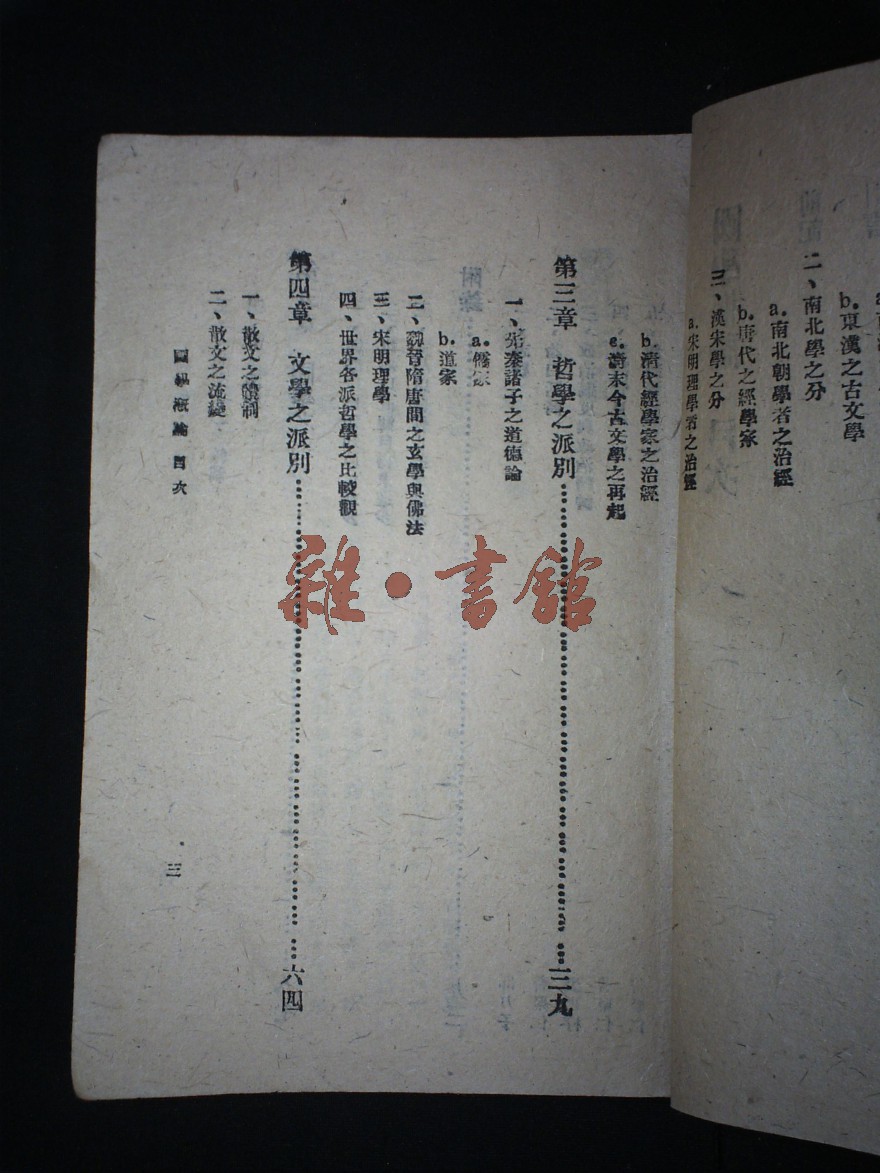 b.東漢之古文學
二、南北學之分
a.南北朝學者之治經
b.唐代之經學家
三、漢宋學之分
a.宋明理學者之治經
b.清代經學家之治經
c.清末今古文學之再起
第三章 哲學之派別……三九
一、先秦諸子之道德論
a.儒家
b.道家
二、魏晉隋唐間之玄學與佛法
三、宋明理學
四、世界各派哲學之比較觀
第四章 文學之派別……六四
一、散文之體制
二、散文之流變
國學概論 目次
三
雜·書館